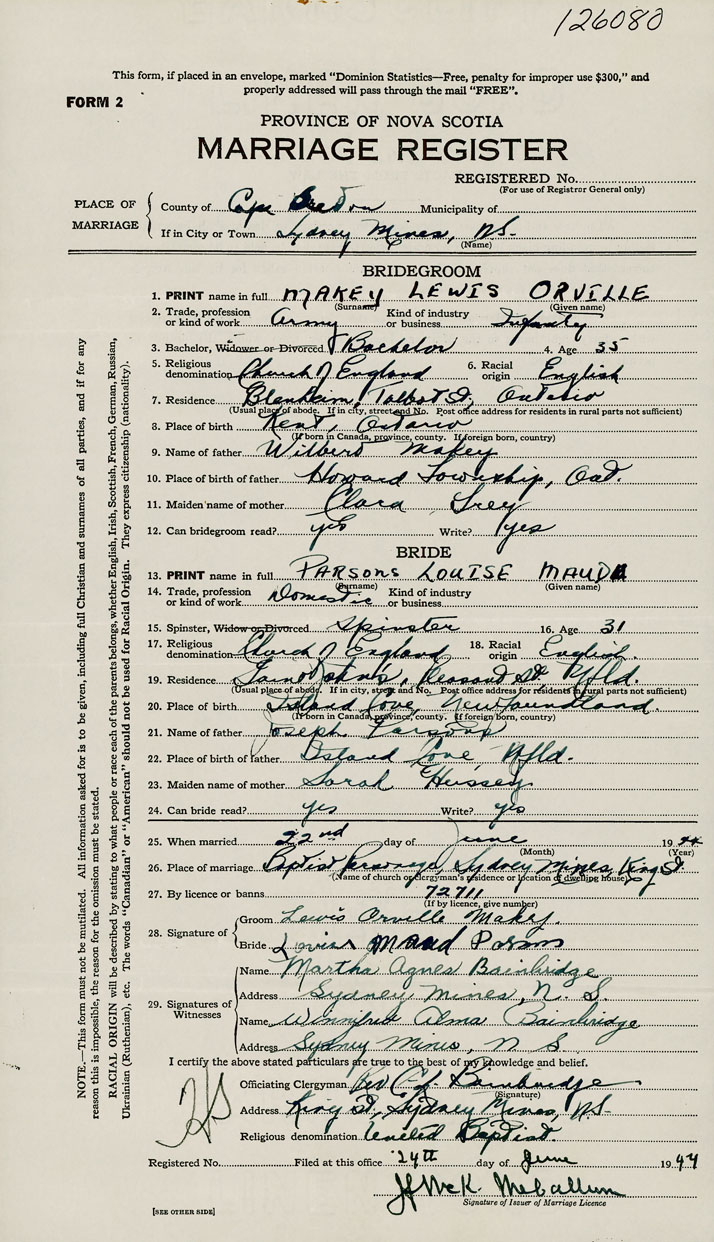 126080
This form, if placed in an envelope, marked "Dominion Statistics—Free, penalty for improper use $300," and
properly addressed will pass through the mail "FREE".
FORM 2
PROVINCE OF NOVA SCOTIA
MARRIAGE REGISTER
REGISTERED No.
(For use of Registrar General only)
PLACE OF MARRIAGE
County of Cape Breton Municipality of
If in City or Town Sydney Mines, N.S.
(Name)
BRIDEGROOM
1. PRINT name in full MAKEY LEWIS ORVILLE
(Surname) (Given name)
2. Trade, profession or kind of work Army Kind of industry or business Infantry
3. Bachelor, Widower or Divorced Bachelor 4. Age 35
5. Religious denomination Church of England 6. Racial origin English
7. Residence Blenheim, Talbot St, Ontario
(Usual place of abode. If in city, street and No. Post office address for residents in rural parts not sufficient)
8. Place of birth Kent, Ontario
(If born in Canada, province, county. If foreign born, country)
9. Name of father Wilbert Makey
10. Place of birth of father Howard Township, Ont.
11. Maiden name of mother Clara
12. Can bridegroom read? yes Write? yes
BRIDE
13. PRINT name in full PARSONS LOUISE MAUDE
(Surname) (Given name)
14. Trade, profession or kind of work Domestic Kind of industry or business
15. Spinster, Widow or Divorced Spinster 16. Age 31
17. Religious denomination Church of England 18. Racial origin English
19. Residence Saint John's, Pleasant St. Nfld.
(Usual place of abode. If in city, street and No. Post office address for residents in rural parts not sufficient)
20. Place of birth Island Cove, Newfoundland
(If born in Canada, province, county. If foreign born, country)
21. Name of father Joseph Parsons
22. Place of birth of father Island Cove, Nfld.
23. Maiden name of mother Sarah Hussey
24. Can bride read? yes Write? yes
25. When married 22nd day of June 1944
(Month) (Year)
26. Place of marriage Baptist Parsonage, Sydney Mines, King St.
(Name of church or clergyman's residence or location of dwelling house)
27. By licence or banns 72711
(If by licence, give number)
28. Signature of
Groom Lewis Orville Makey
Bride Louise Maud Parsons
29. Signatures of Witnesses
Name Martha Agnes Bainbridge
Address Sydney Mines, N. S.
Name Winnifred Alma Bainbridge
Address Sydney Mines, N S.
I certify the above stated particulars are true to the best of my knowledge and belief.
Officiating Clergyman Rev Bainbridge
(Signature)
Address King St, Sydney Mines, NS-
Religious denomination United Baptist.
Registered No. Filed at this office 24th day of June 1944
McK. McCallum
Signature of Issuer of Marriage Licence
[SEE OTHER SIDE]
NOTE.—This form must not be mutilated. All information asked for is to be given, including full Christian and surnames of all parties, and if for any
reason this is impossible, the reason for the omission must be stated.
RACIAL ORIGIN will be described by stating to what people or race each of the parents belongs, whether English, Irish, Scottish, French, German, Russian,
Ukrainian (Ruthenian), etc. The words "Canadian" or "American" should not be used for Racial Origin. They express citizenship (nationality).